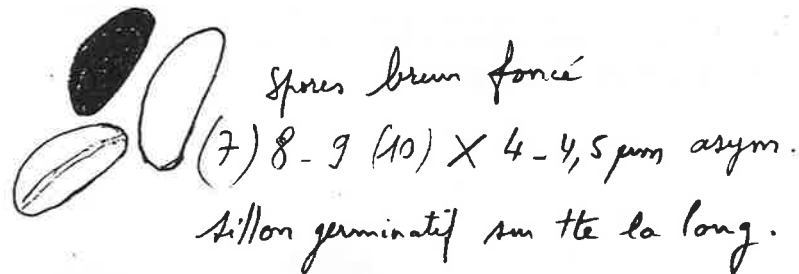 spores brun foncé
(7) 8 - 9 (10) X 4 - 4,5 µm asym.
sillon germinatif sur tte la long.